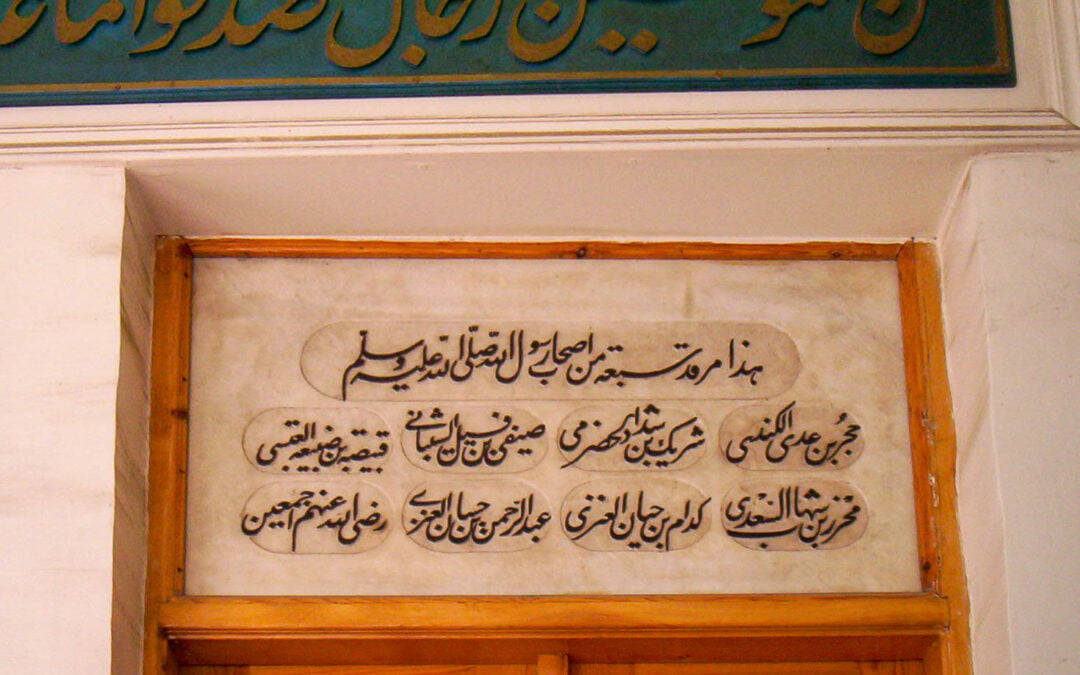 من المؤمنين رجال صدقوا ما عا
هذا مرقد سبعة من اصحاب رسول الله صلّی الله علیه وسلّم
حُجر بن عدی الکندی شریک بن شداد الحضرمی صیفی بن فسیل الشبانی قبیصة بن ضبیعه العبسی
محرز بن شهاب السَّعْدی کدام بن حیان العنزی عبدالرّحمن بن حسان العنزی رضی الله عنهم اجمعین